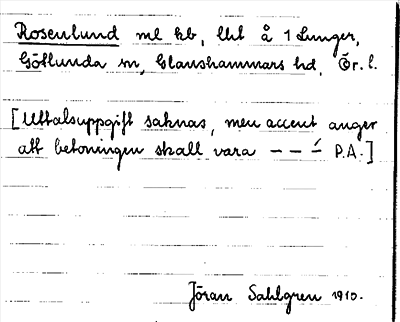 Rosenlund ml kb, lht å 1 Lunger,
Götlunda sn, Glanshammars hd, Ör. l.
[Uttalsuppgift saknas, men accent anger
att betoningen skall vara – – –́ P.A.]
Jöran Sahlgren 1910.